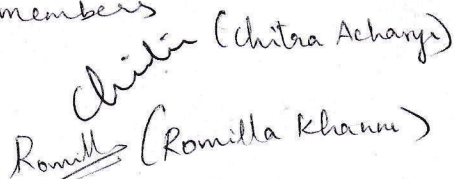 members
Chitra (Chitra Acharya)
Romilla (Romilla Khanna)